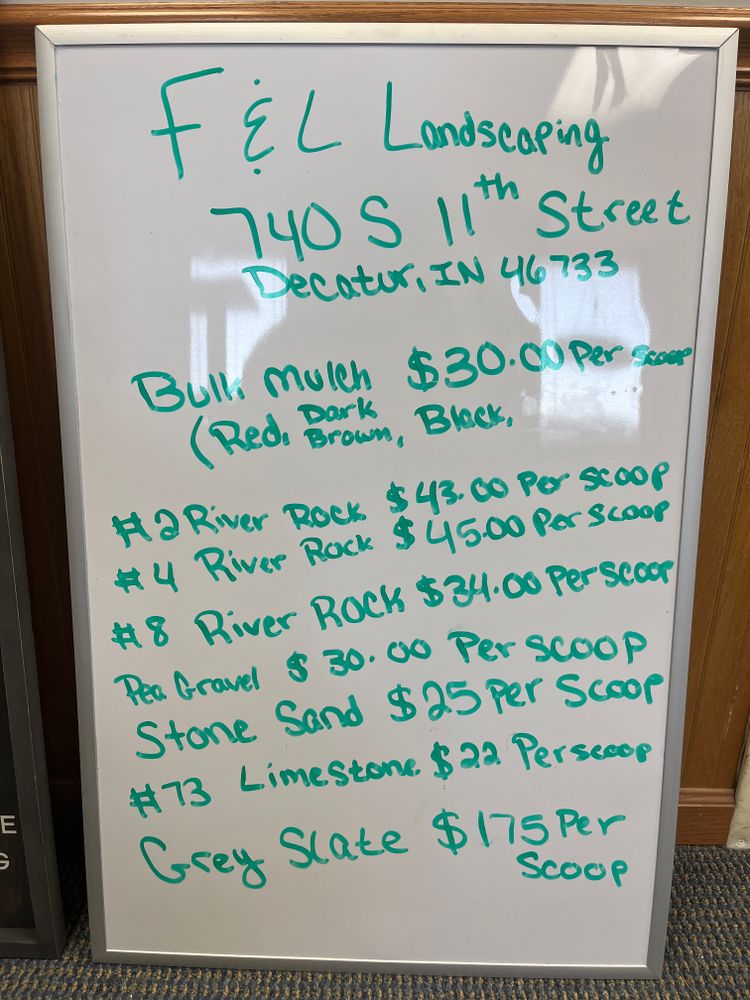 F & L Landscaping
740 S 11th Street
Decatur, IN 46733
Bulk Mulch $30.00 Per Scoop
(Red, Dark Brown, Black,
#2 River Rock $43.00 Per Scoop
#4 River Rock $45.00 Per Scoop
#8 River Rock $34.00 Per Scoop
Pea Gravel $30.00 Per Scoop
Stone Sand $25 Per Scoop
#73 Limestone $22 Per scoop
Grey Slate $175 Per
Scoop
E
G